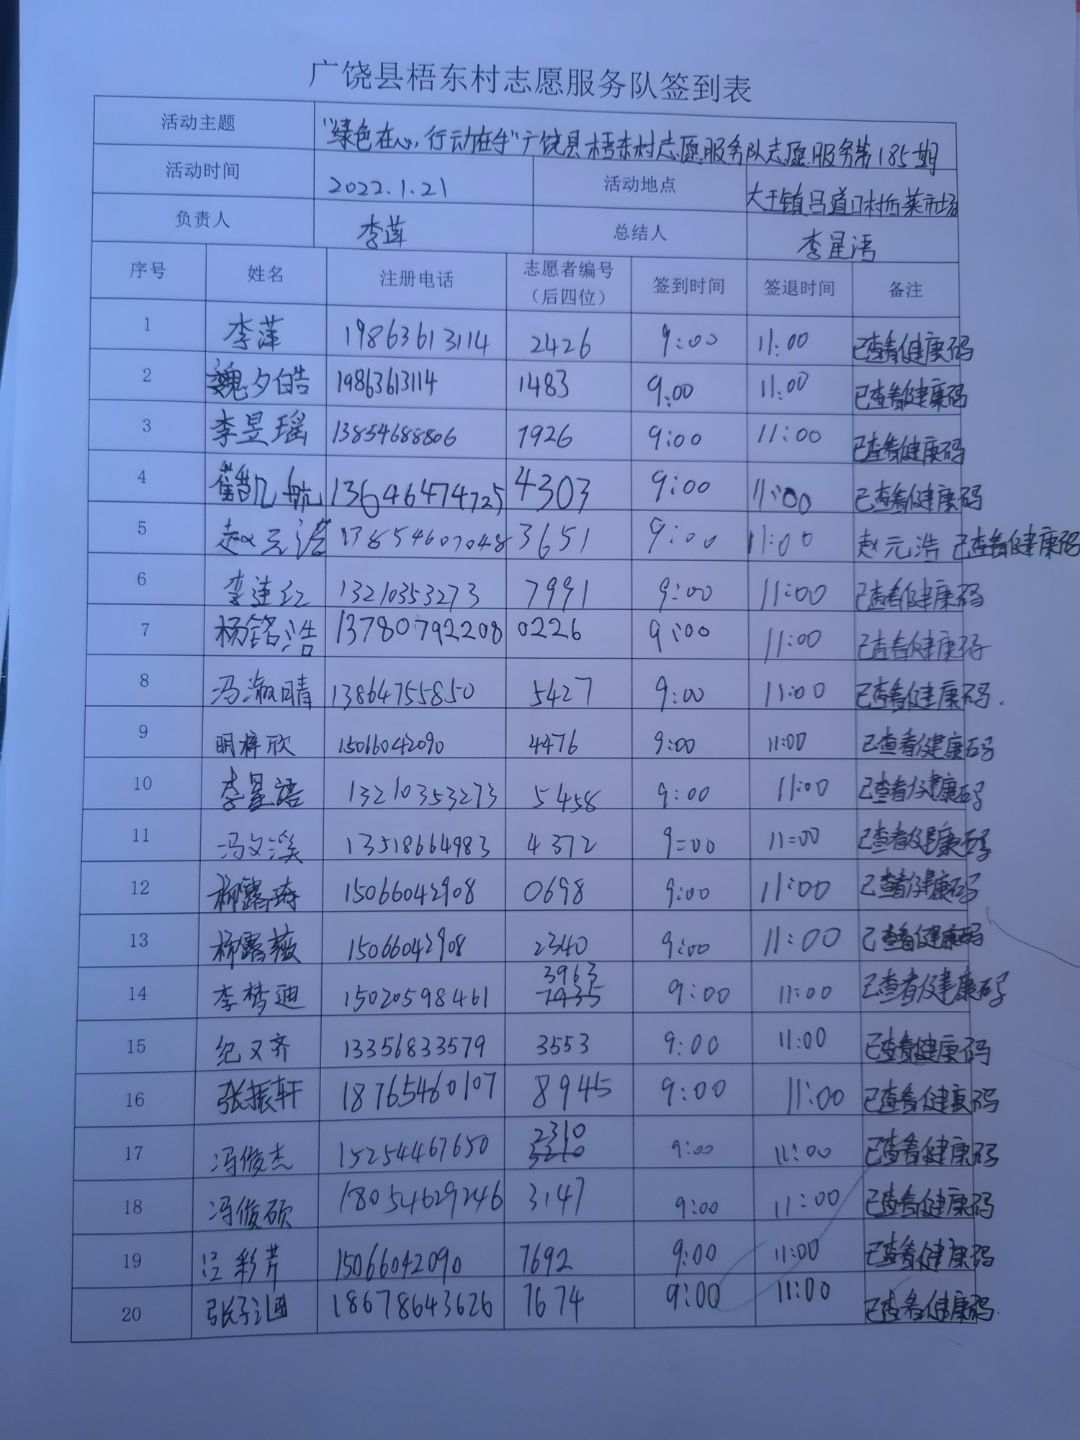 广饶县梧东村志愿服务队签到表
活动主题 "绿色在心,行动在手"广饶县梧东村志愿服务队志愿服务第185期
活动时间 2022.1.21 活动地点 大王镇吕道口村西菜市场
负责人 李萍 总结人 李星语
序号 姓名 注册电话 志愿者编号(后四位) 签到时间 签退时间 备注
1 李萍 19863613114 2426 9:00 11:00 已查看健康码
2 魏夕皓 19863613114 1483 9:00 11:00 已查看健康码
3 李昱瑶 13854688806 1926 9:00 11:00 已查看健康码
4 崔凯航 13646474725 4303 9:00 11:00 已查看健康码
5 赵元浩 13854607048 3651 9:00 11:00 赵元浩 已查看健康码
6 李连红 13210353273 7991 9:00 11:00 已查看健康码
7 杨铭浩 13780792208 0226 9:00 11:00 已查看健康码
8 冯淑晴 13864755850 5427 9:00 11:00 已查看健康码.
9 明梓欣 15066042090 4476 9:00 11:00 已查看健康码
10 李星语 13210353273 5458 9:00 11:00 已查看健康码
11 冯文溪 13518664983 4372 9:00 11:00 已查看健康码
12 柳露琦 15066042908 0698 9:00 11:00 已查看健康码
13 柳露薇 15066042908 2340 9:00 11:00 已查看健康码
14 李梦迪 15020598461 3963 9:00 11:00 已查看健康码
15 纪又齐 13356833579 3553 9:00 11:00 已查看健康码
16 张振轩 18765460107 8945 9:00 11:00 已查看健康码
17 冯俊杰 15254467650 2310 9:00 11:00 已查看健康码
18 冯俊硕 18054629246 3147 9:00 11:00 已查看健康码
19 吕彩芹 15066042090 7692 9:00 11:00 已查看健康码
20 张子涵 18678643626 7674 9:00 11:00 已查看健康码